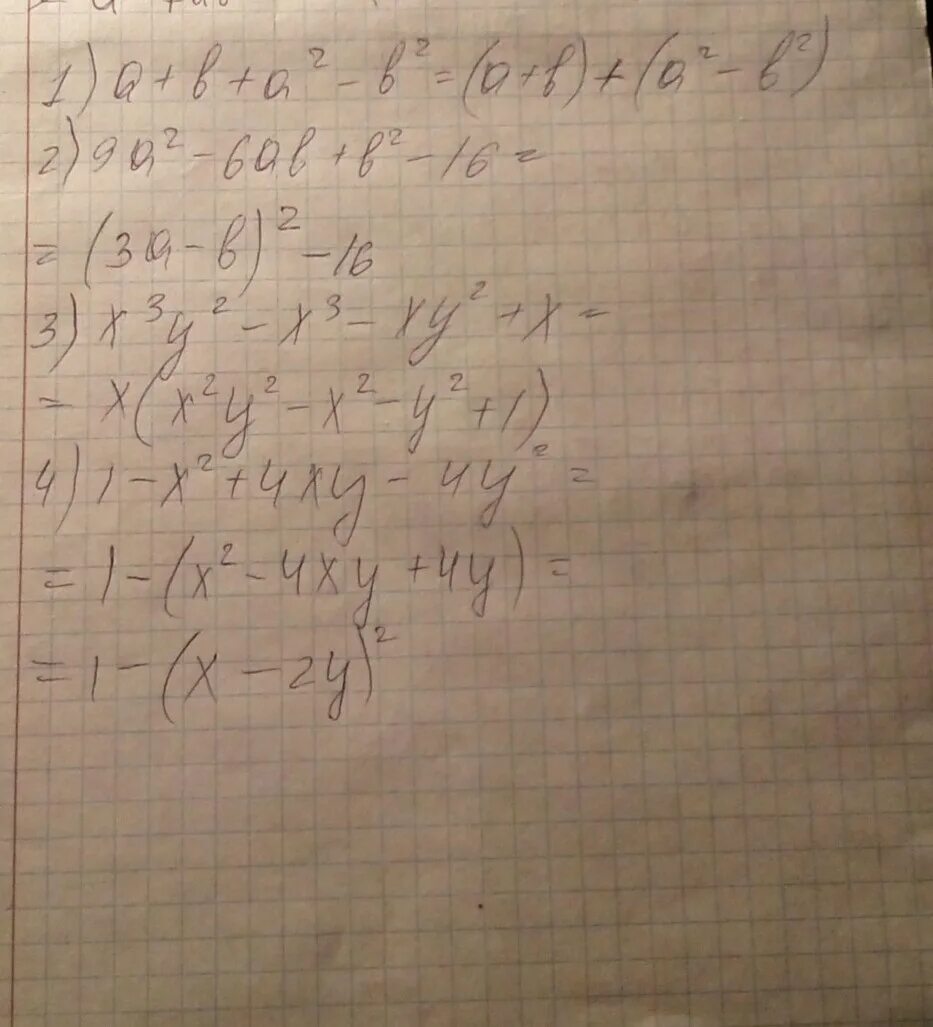 1) a + b + a² - b² = (a+b) + (a² - b²)
2) 9a² - 6ab + b² - 16 =
= (3a - b)² - 16
3) x³y² - x³ - xy² + x =
= x(x²y² - x² - y² + 1)
4) 1 - x² + 4xy - 4y² =
= 1 - (x² - 4xy + 4y) =
= 1 - (x - 2y)²